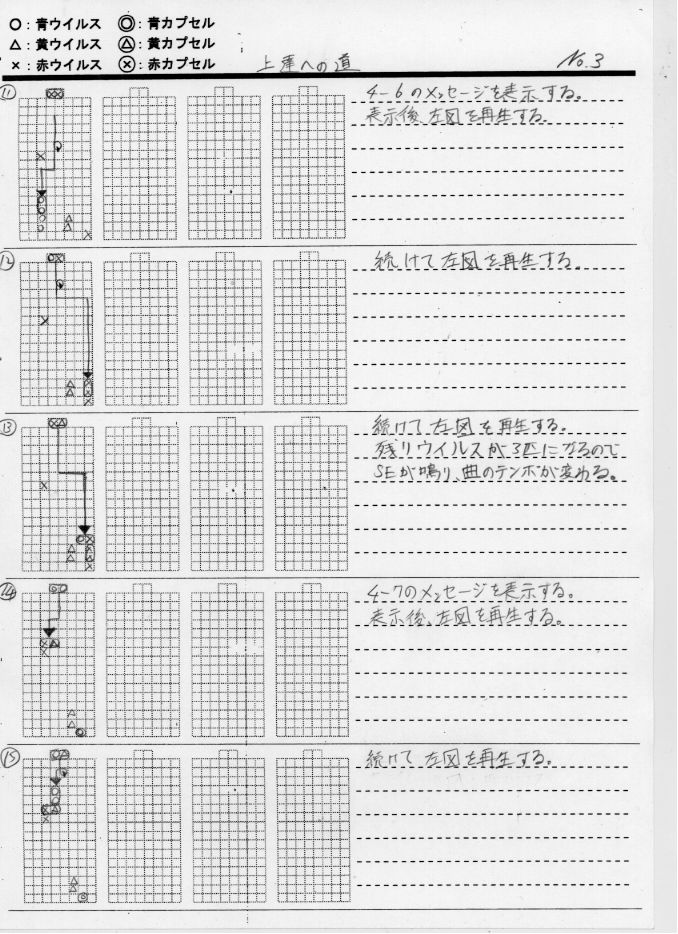 ○：青ウイルス ◎：青カプセル
△：黄ウイルス △：黄カプセル
×：赤ウイルス ⊗：赤カプセル
上達への道 No.3
⑪
4-6のメッセージを表示する。
表示後、左図を再生する。
⑫
続けて左図を再生する。
⑬
続けて左図を再生する。
残りウイルスが3匹になるので
SEが鳴り、曲のテンポが変わる。
⑭
4-7のメッセージを表示する。
表示後、左図を再生する。
⑮
続けて左図を再生する。